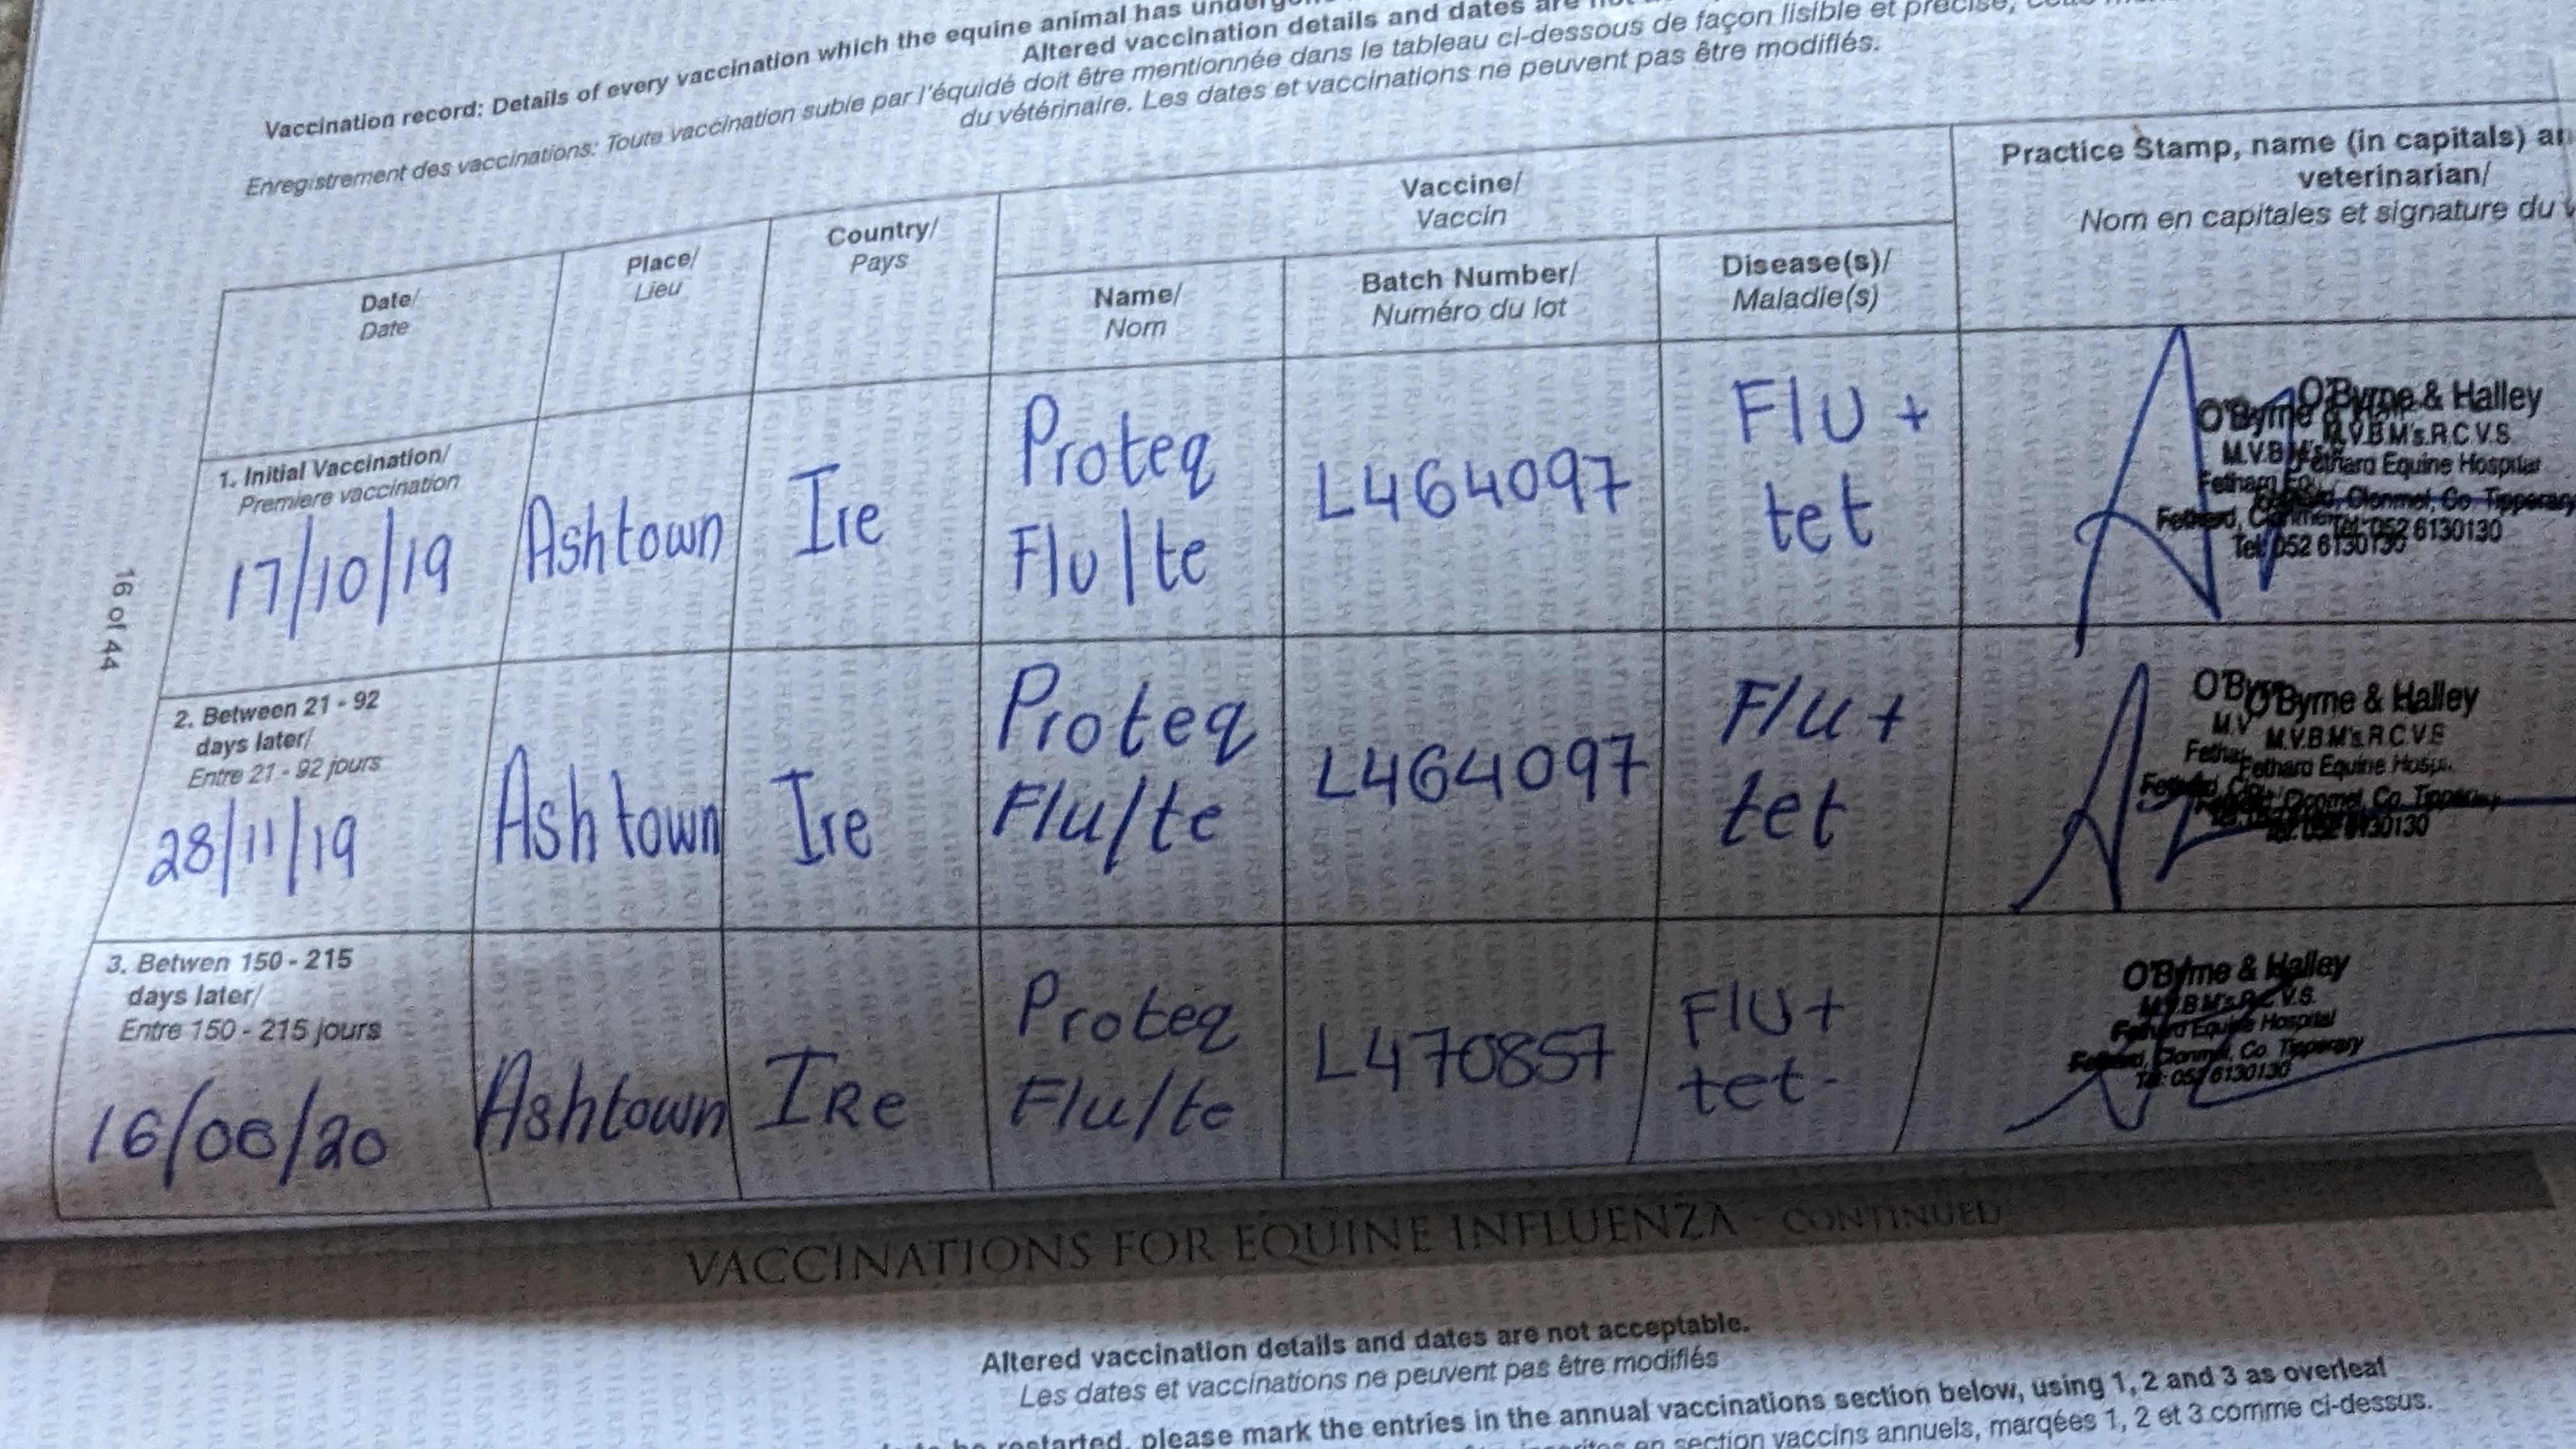 Vaccination record: Details of every vaccination which the equine animal has
Altered vaccination details and dates are
Enregistrement des vaccinations: Toute vaccination subie par l'équidé doit être mentionnée dans le tableau ci-dessous de façon lisible et précise,
du vétérinaire. Les dates et vaccinations ne peuvent pas être modifiés.
Date/
Date
Place/
Lieu
Country/
Pays
Vaccine/
Vaccin
Name/
Nom
Batch Number/
Numéro du lot
Disease(s)/
Maladie(s)
Practice Stamp, name (in capitals)
veterinarian/
Nom en capitales et signature du
1. Initial Vaccination/
Premiere vaccination
17/10/19
Ashtown
Ire
Proteq
Flu/te
L464097
Flu +
tet
O'Byrne & Halley
M.V.B.M's.R.C.V.S.
Fethard Equine Hospital
Fethard, Clonmel, Co. Tipperary
Tel: 052 6130130
16 of 44
2. Between 21 - 92
days later/
Entre 21 - 92 jours
28/11/19
Ashtown
Ire
Proteq
Flu/te
L464097
Flu +
tet
O'Byrne & Halley
M.V.B.M's.R.C.V.S
Fethard Equine
Clonmel, Co. Tipperary
Tel: 052 6130130
3. Betwen 150 - 215
days later/
Entre 150 - 215 jours
16/06/20
Ashtown
IRe
Proteq
Flu/te
L470857
Flu +
tet
O'Byrne & Halley
M.V.B.M's.R.C.V.S.
Fethard Equine Hospital
Fethard, Clonmel, Co. Tipperary
Tel: 052 6130130
VACCINATIONS FOR EQUINE INFLUENZA - CONTINUED
Altered vaccination details and dates are not acceptable.
Les dates et vaccinations ne peuvent pas être modifiés
restarted, please mark the entries in the annual vaccinations section below, using 1, 2 and 3 as overleaf
en section vaccins annuels, marqées 1, 2 et 3 comme ci-dessus.